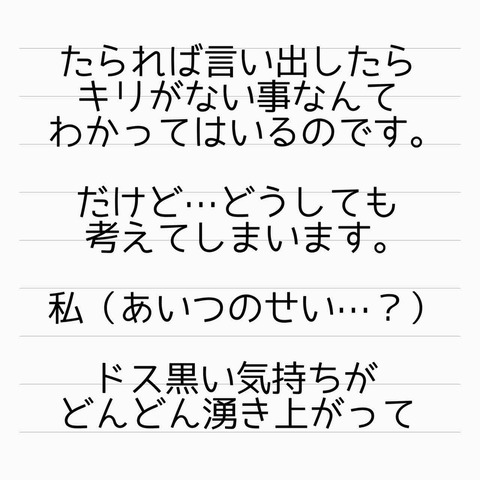 たられば言い出したら
キリがない事なんて
わかってはいるのです。
だけど…どうしても
考えてしまいます。
私（あいつのせい…？）
ドス黒い気持ちが
どんどん湧き上がって